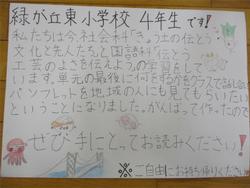 緑が丘東小学校 4年生です!
私たちは今社会科「きょう土の伝とう
文化と先人たち」と国語科「伝とう
工芸のよさを伝えよう」の学習をして
います。単元の最後に何をするかをクラスで話し合い
パンフレットを地域の人にも見てもらいたい
ということになりました。がんばって作ったので
ぜひ手にとってお読みください!
※ご自由にお持ち帰りください